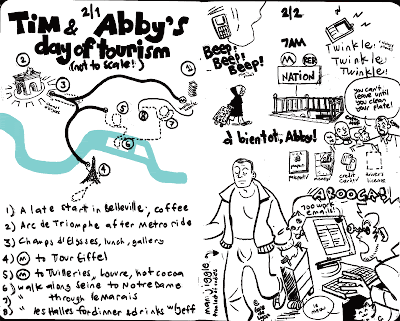 2/1
Tim & Abby's
day of tourism
(not to scale!)
2
3
1
5
8
7
6
4
1) A late start in Belleville, coffee
2) Arc de Triomphe after metro ride
3) Champs d'Elysses, lunch, gallery
4) M to Tour Eiffel
5) M to Tuilleries, Louvre, hot cocoa
6) walk along Seine to Notre Dame
7) " through le marais
8) " les Halles for dinner & drinks w/ Jeff
2/2
Beep!
Beep!
Beep!
7AM
M RER
NATION
Twinkle!
Twinkle!
Twinkle!
you can't
leave until
you clean
your plate!
à bientôt, Abby!
passport!
money!
credit
cards!
drivers
license
AROOGA!
700 work
emails!
man jiggle